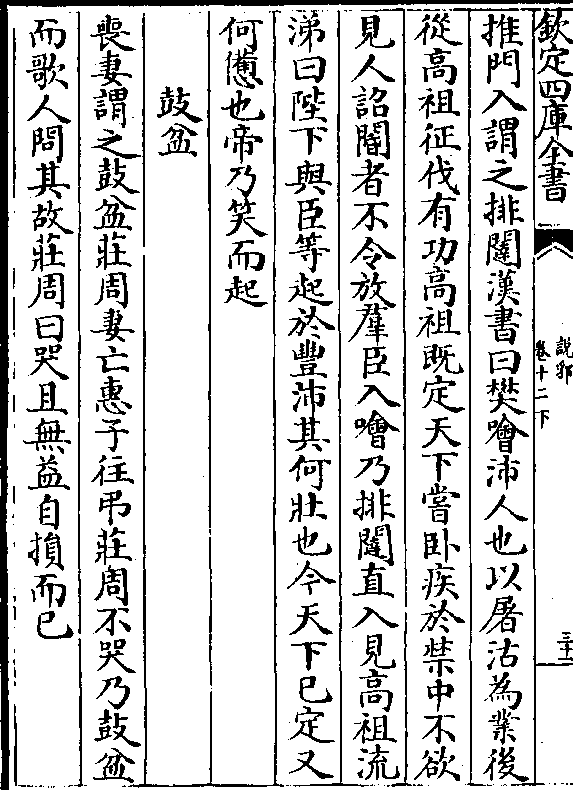 欽定四庫全書
說郛
卷十二下
三十二
推門入謂之排闥漢書曰樊噲沛人也以屠沽為業後
從高祖征伐有功高祖既定天下嘗臥疾於禁中不欲
見人詔閽者不令放羣臣入噲乃排闥直入見高祖流
涕曰陛下與臣等起於豐沛其何壯也今天下已定又
何憊也帝乃笑而起
鼓盆
喪妻謂之鼓盆莊周妻亡惠子往弔莊周不哭乃鼓盆
而歌人問其故莊周曰哭且無益自損而已